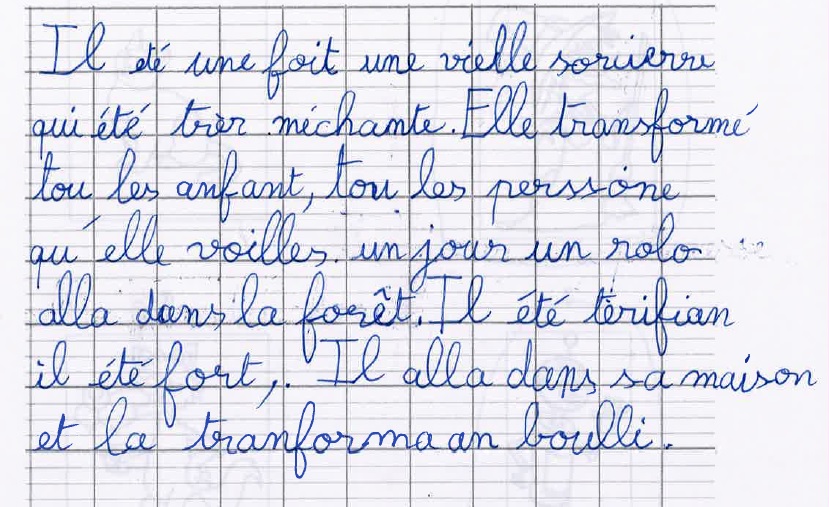 Il été une foit une vielle sorcierre
qui été trèr méchante. Elle transformé
tou les anfant, tou les perssone
qu'elle voilles. un jour un rolo
alla dans la forêt. Il été tèrifian
il été fort,. Il alla dans sa maison
et la tranforma an boulli.